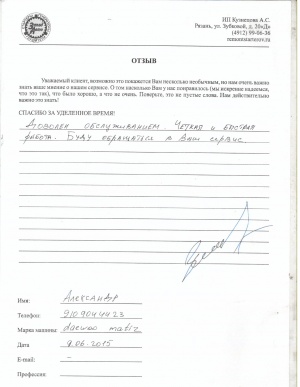 ИП Кузнецова А.С.
Рязань, ул. Зубковой, д. 20«Д»
(4912) 99-06-36
ОТЗЫВ
Уважаемый клиент, возможно это покажется Вам несколько необычным, но нам очень важно
знать ваше мнение о нашем сервисе. О том насколько Вам у нас понравилось (мы искренне надеемся,
что это так), что было хорошо, а что не очень. Поверьте, что не пустые слова. Нам действительно
важно это знать!
СПАСИБО ЗА УДЕЛЕННОЕ ВРЕМЯ!
Доволен обслуживанием. Четкая и быстрая
работа. Буду обращаться в Ваш сервис
Имя: Александр
Телефон: 9109044423
Марка машины: daewoo matiz
Дата 9.06.2015
E-mail: –
Профессия: